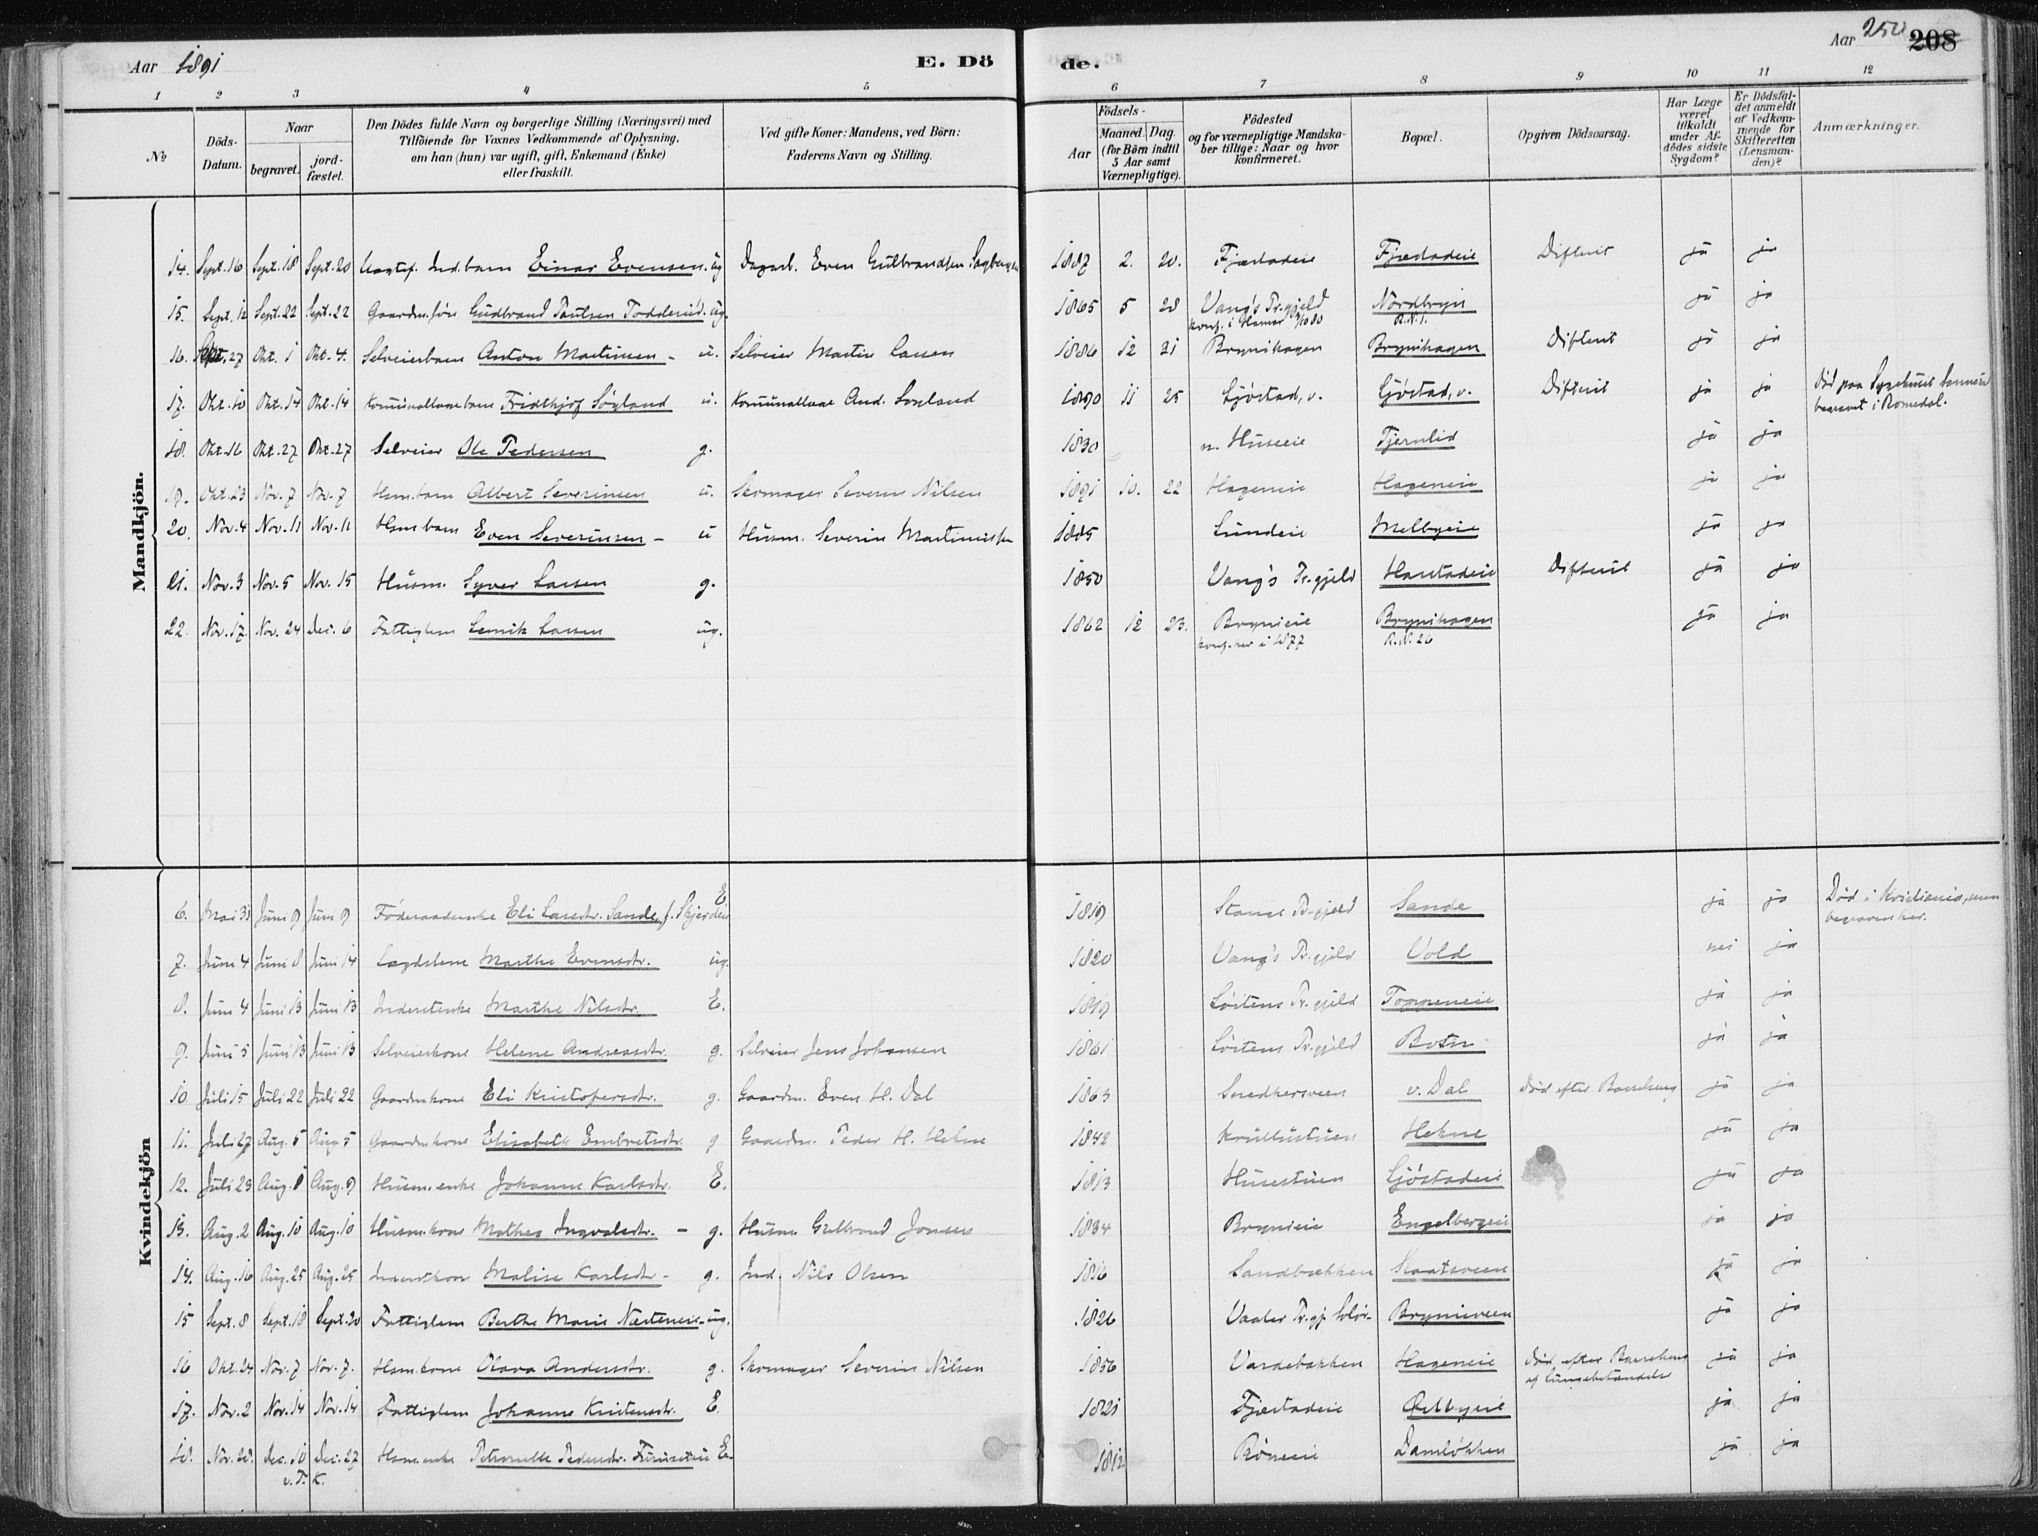 Aar 1891
E. Døde.
Aar 250 208
1 2 3 4 5 6 7 8 9 10 11 12
№
Døds-Datum.
Naar
begravet.
jord-fæstet.
Den Dödes fulde Navn og borgerlige Stilling (Næringsvei) med
Tilföiende for Voxnes Vedkommende af Oplysning,
om han (hun) var ugift, gift, Enkemand (Enke)
eller fraskilt.
Ved gifte Koner: Mandens, ved Börn:
Faderens Navn og Stilling.
Födsels-
Aar
Maaned. Dag.
(for Börn indtil
5 Aar samt
Værnepligtige).
Födested
og for værnepligtige Mandska-
ber tillige: Naar og hvor
konfirmeret.
Bopæl.
Opgiven Dödsaarsag.
Har Læge
været
tilkaldt
under Af-
dödes sidste
Sygdom?
Er Dödsfal-
det anmeldt
af Vedkom-
mende for
Skifteretten
(Lensman-
den)?
Anmærkninger.
Mandkjön.
14. Sept. 16 Sept. 18 Sept. 20 Ind. barn Einar Evensen ug. Dagarb. Even Gulbrandsen 1887 2. 20. Fjæstadeie Fjæstadeie Difterit ja ja
15. Sept. 12 Sept. 22 Sept. 22 Gudbrand Paulsen ug. 1865 5 28 Vang's Pr.gjeld Nordbryn ja ja
konf. i Hamar
16. Sept. 27 Okt. 1 Okt. 4. Selveierbarn Anton Martinsen - u. Selveier Martin Larsen 1886 12 31 Brynihagen Brynihagen Difterit ja ja
17. Okt. 10 Okt. 14 Okt. 14 Fridthjof Søgland u. And. Søgland 1890 11 25 Gjøstad, v. Gjøstad, v. Difterit ja ja Død paa Sygehuset
begravet i Romedal.
18. Okt. 16 Okt. 27 Okt. 27 Selveier Ole Pedersen g. 1830 n. Huseeie Tjernlid ja ja
19. Okt. 23 Nov. 7 Nov. 7 Hsm. barn Albert Severinsen u. Skomager Severin Nilsen 1891 10. 22 Hageneie Hageneie ja ja
20. Nov. 4 Nov. 11 Nov. 11 Hsm. barn Even Severinsen - u Husm. Severin 1885 Lundeie Melbyeie ja ja
21. Nov. 3 Nov. 5 Nov. 15 Husm. Syver Larsen g. 1850 Vang's Pr.gjeld Difterit ja ja
22. Nov. 17. Nov. 24 Dec. 6 Fattiglem Larsen ug. 1862 12 23. Brynieie Brynihagen ja ja
konf. her i 1877 R.N. 26
Kvindekjön
6. Mai 31 Juni 9 Juni 9 Føderaadsenke Eli Larsdtr. Sande E. 1819 Stange Pr.gjeld Sande ja ja Død i Kristiania, men
begraven her.
7. Juni 4 Juni 8 Juni 14 Lægdslem Marthe Evensdtr. ug. 1820 Vang's Pr.gjeld Vold nei ja
8. Juni 4 Juni 13 Juni 13 Inderstenke Marthe Nilsdtr. E. 1819 Løitens Pr.gjeld Toppeneie ja ja
9. Juni 5 Juni 13 Juni 13 Selveierkone Helene Andreasdtr. g. Selveier Jens Johansen 1861 Løitens Pr.gjeld ja ja
10 Juli 15 Juli 22 Juli 22 Gaardmkone Eli Kristofersdtr. g. Gaardm. Even H. Dal 1863 Snedkersveen v. Dal Død efter Barselseng ja ja
11. Juli 27 Aug. 5 Aug. 5 Gaardmkone Elisabeth Embretsdtr. g. Gaardm. Peder H. Hekne 1842 Hekne ja ja
12. Juli 29 Aug. 8 Aug. 9 Husm. enke Johanne Karlsdtr. E. 1813 Husestuen Gjøstadeie ja ja
13. Aug. 2 Aug. 10 Aug. 10 Husm. kone Mathea Ingvalsdtr. - g. Husm. Gulbrand Jonsen 1834 Brynieie Engelbergeie ja ja
14. Aug. 16 Aug. 25 Aug. 25 Inderstkone Malise Karlsdtr - g. Ind. Nils Olsen 1816 Sandbækken ja ja
15 Sept. 8 Sept. 18 Sept. 20 Fattiglem Berthe Marie ug. 1826 Vaaler Pr.gj. Solør Brynisveen ja ja
16 Okt. 24 Nov. 7 Nov. 7. Hsm. kone Olava Andersdtr. g. Skomager Severin Nilsen 1856 Vardebakken Hageneie Død efter Barselseng ja ja
og Lungebetændelse
17. Nov. 2 Nov. 14 Nov. 14 Fattiglem Johanne Kristensdtr. E. 1821 Fjæstadeie ja ja
18. Nov. 28. Dec. 10 Dec. 27 Hsm. enke Petronelle Pedersdtr. E. 1812 Røneeie Damløkken ja ja
v. F. K.